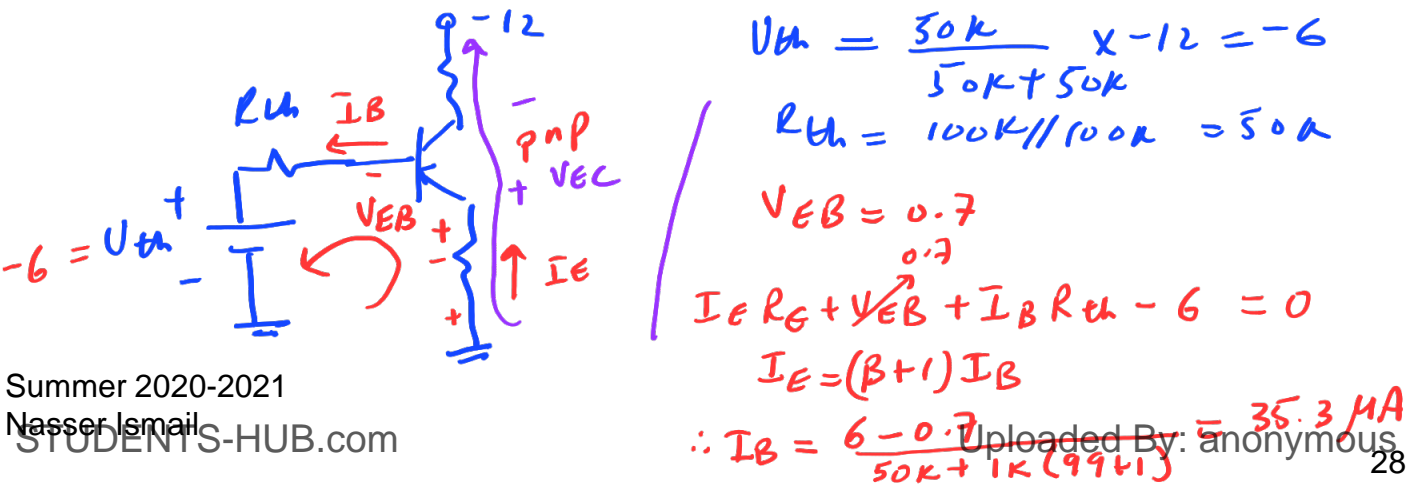 -12
Rth IB
pnp
VEC
+
-
VEB
+
-
+
-6 = Vth
+
-
IE
Vth = 50K / 50K+50K x -12 = -6
Rth = 100K//100K = 50K
VEB = 0.7
0.7
IE RE + VEB + IB Rth - 6 = 0
IE = (β+1) IB
∴ IB = 6-0.7 / 50K + 1K (99+1) = 35.3 μA
Summer 2020-2021
Nasser Ismail
STUDENTS-HUB.com
Uploaded By: anonymous
28